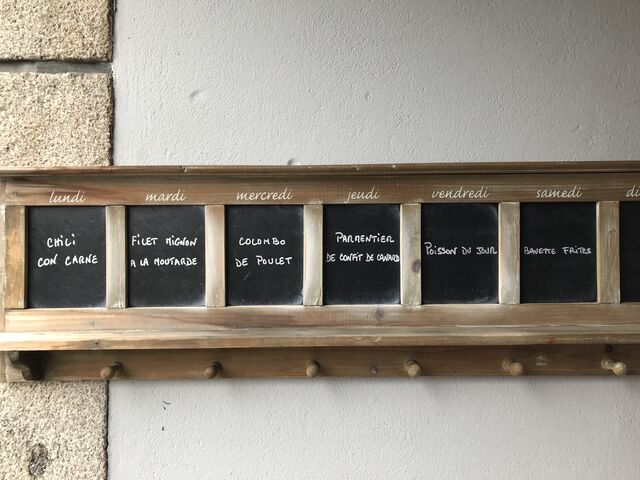 lundi
mardi
mercredi
jeudi
vendredi
samedi
di
CHILI
CON CARNE
FILET MIGNON
A LA MOUTARDE
COLOMBO
DE POULET
PARMENTIER
DE CONFIT DE CANARD
POISSON DU JOUR
BAVETTE FRITES